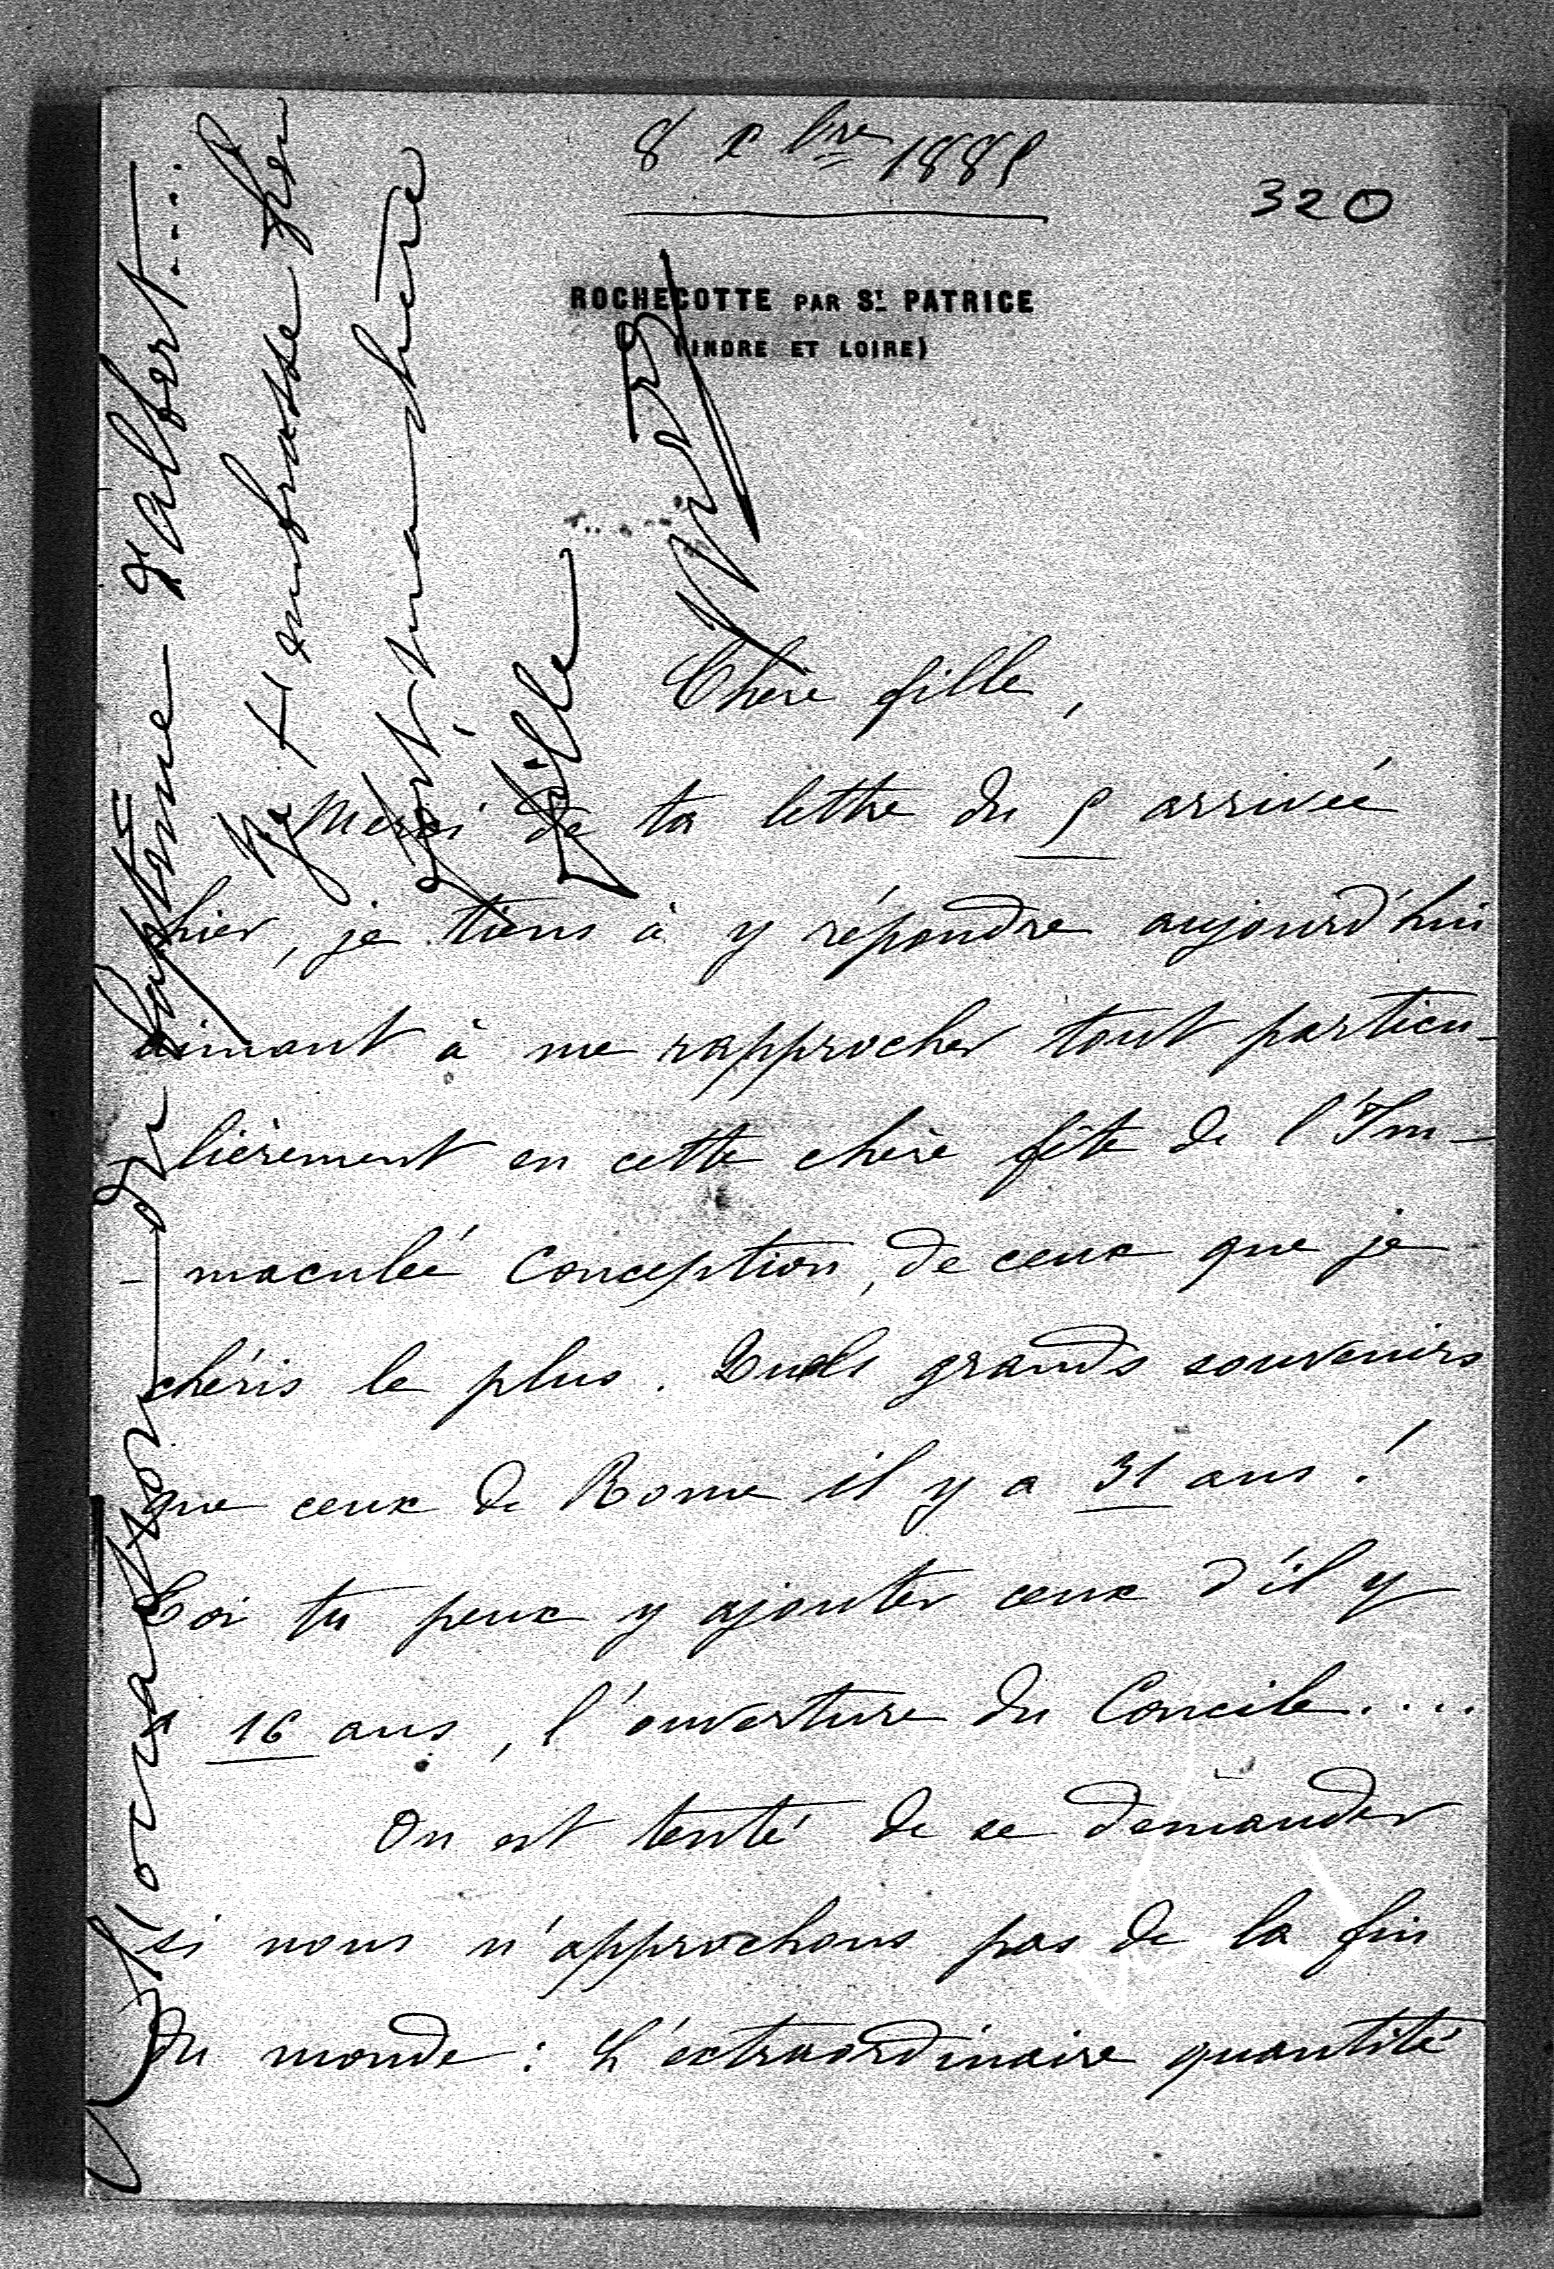 8 xbre 1885
320
ROCHECOTTE PAR ST PATRICE
(INDRE ET LOIRE)
Chère fille,
Merci de ta lettre du 5 arrivée
hier, je tiens à y répondre aujourd'hui
aimant à me rapprocher tout particu-
lièrement en cette chère fête de l'Im-
- maculée Conception, de ceux que je
chéris le plus. Quels grands souvenirs
que ceux de Rome il y a 31 ans!
Toi tu peux y ajouter ceux d'il y
a 16 ans, l'ouverture du Concile....
On est tenté de se demander
si nous n'approchons pas de la fin
du monde: L'extraordinaire quantité
du baptême d'Albert...
Je t'embrasse bien
fort, ma chère
fille